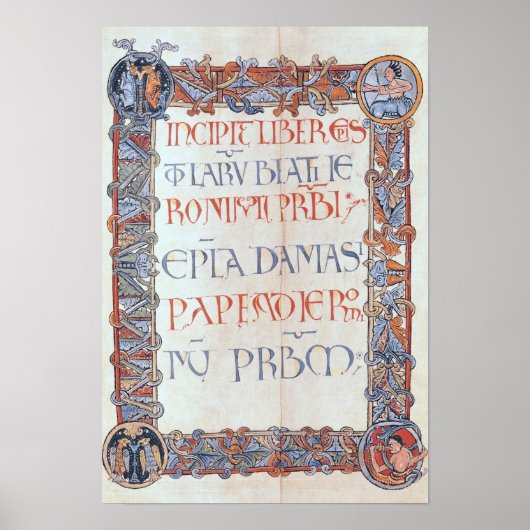 INCIPIT LIBER EP̅S
TOLARŪ BEATI IE
RONIMI PRB̅I
EPL̅A DAMASI
PAPE AD IERO
NIMŪ PRB̅M